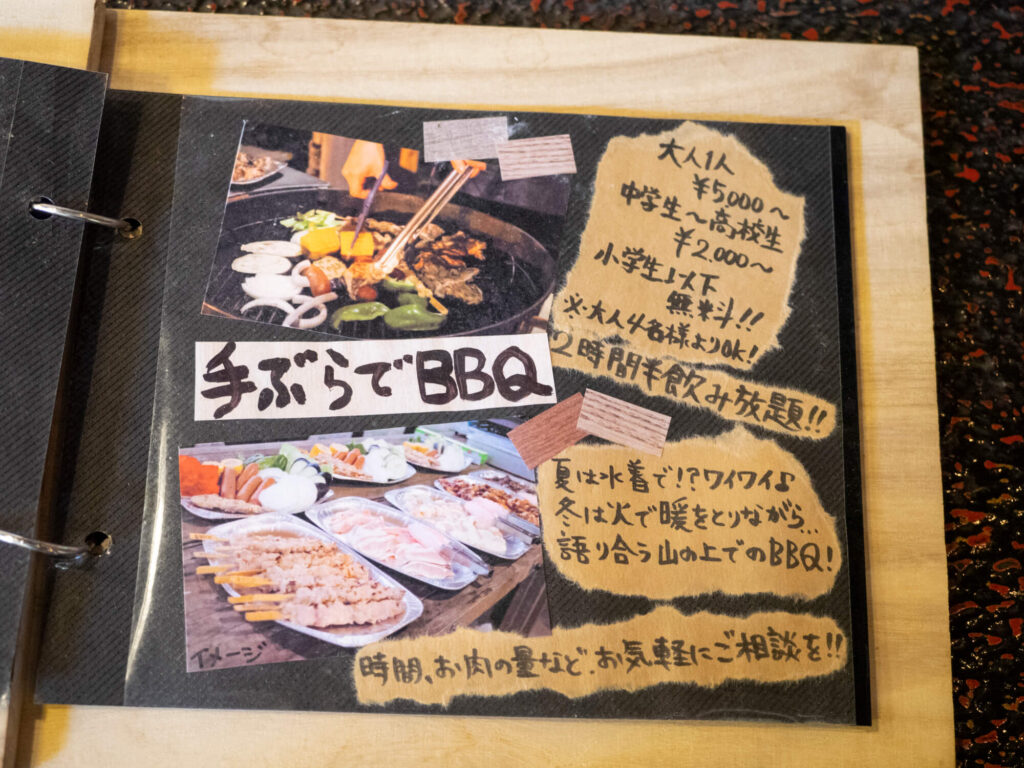 大人1人
¥5,000〜
中学生〜高校生
¥2,000〜
小学生以下
無料!!
※大人4名様よりOK!
2時間半飲み放題!!
手ぶらでBBQ
夏は水着で!?ワイワイ♪
冬は火で暖をとりながら...
語り合う山の上でのBBQ!
イメージ
時間、お肉の量など、お気軽にご相談を!!